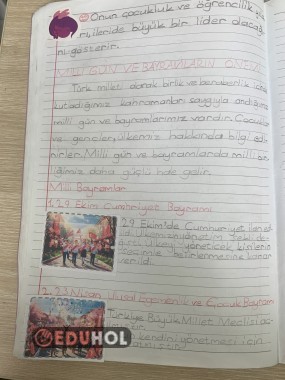 Onun çocukluk ve öğrencilik
ileride büyük bir lider olacağı
nı gösterir.
MİLLİ GÜN VE BAYRAMLARIN ÖNEMİ
Türk milleti olarak birlik ve beraberlik içinde
kutladığımız kahramanları saygıyla andığımız
milli gün ve bayramlarımız vardır. Çocuklar
ve gençler, ülkemiz hakkında bilgi edi
nirler. Milli gün ve bayramlarda milli bir
liğimiz daha güçlü hale gelir.
Milli Bayramlar
1. 29 Ekim Cumhuriyet Bayramı
29 Ekim'de Cumhuriyet ilan ed
verildi.
2. 23 Nisan Ulusal Egemenlik ve Çocuk Bayramı
Türkiye Büyük Millet Meclisi aç
kendini yönetmesi için
EDUHOL